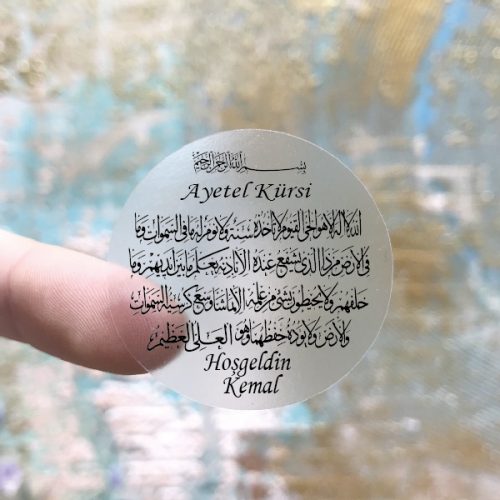 بسم الله الرحمن الرحيم
Ayetel Kürsi
الله لا اله الا هو الحي القيوم لا تاخذه سنة ولا نوم له ما في السموات وما
في الارض من ذا الذي يشفع عنده الا باذنه يعلم ما بين ايديهم وما
خلفهم ولا يحيطون بشئ من علمه الا بما شاء وسع كرسيه السموات
والارض ولا يؤده حفظهما وهو العلي العظيم
Hoşgeldin
Kemal